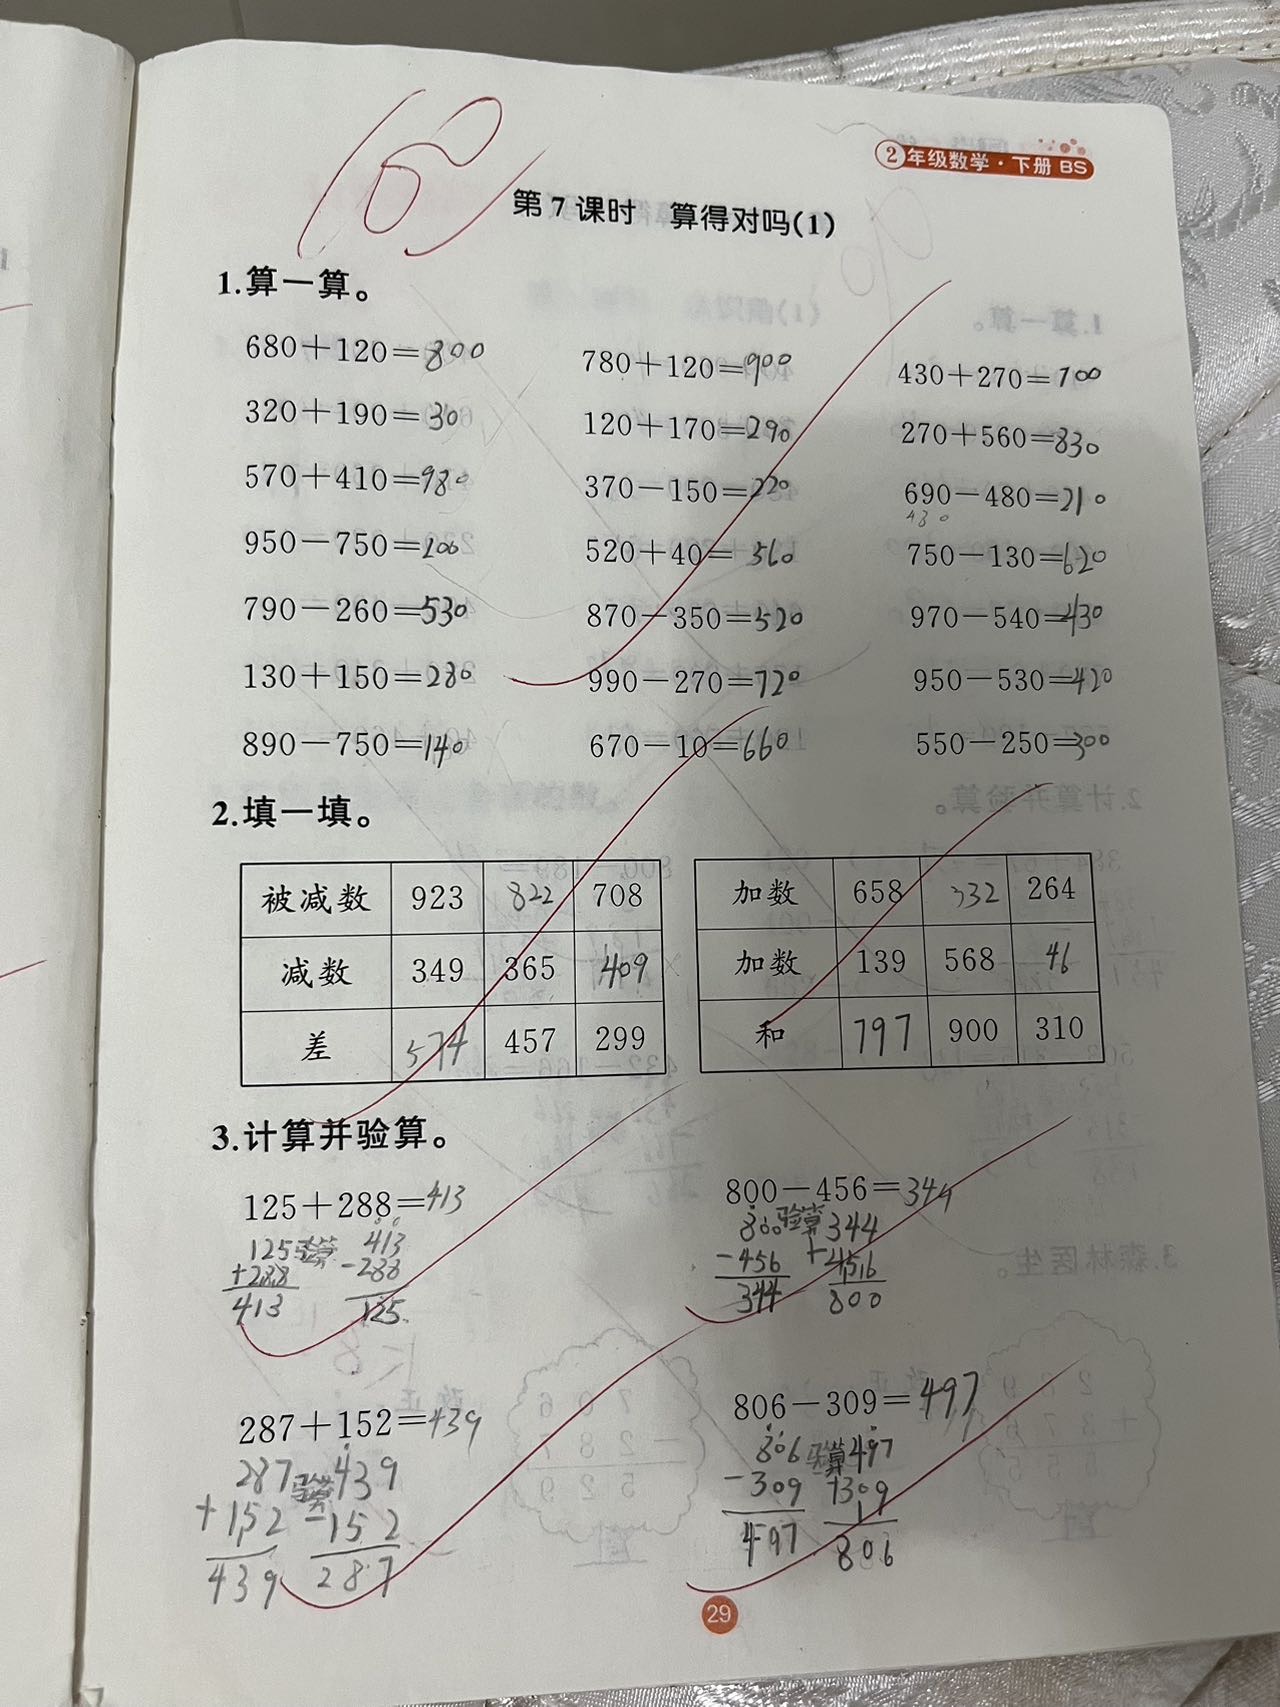 100
2年级数学·下册 BS
第7课时 算得对吗(1)
1.算一算。
680+120=800 780+120=900 430+270=700
320+190=30 120+170=290 270+560=830
570+410=980 370-150=220 690-480=210
480
950-750=200 520+40=560 750-130=620
790-260=530 870-350=520 970-540=430
130+150=280 990-270=720 950-530=420
890-750=140 670-10=660 550-250=300
2.填一填。
被减数 923 822 708 加数 658 332 264
减数 349 365 409 加数 139 568 46
差 574 457 299 和 797 900 310
3.计算并验算。
125+288=413 800-456=344
125 验算 413 800 验算 344
+288 -288 -456 +456
413 125 344 800
287+152=439 806-309=497
287 验算 439 806 验算 497
+152 -152 -309 +309
439 287 497 806
29